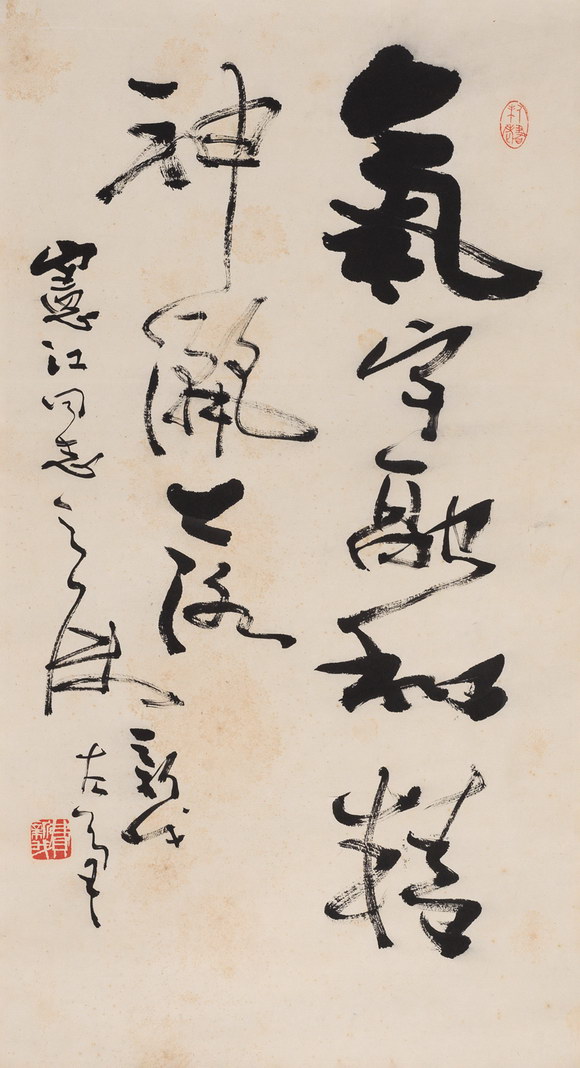 氣宇融和精
神灑落
憲江同志之
新我
左筆
費新我